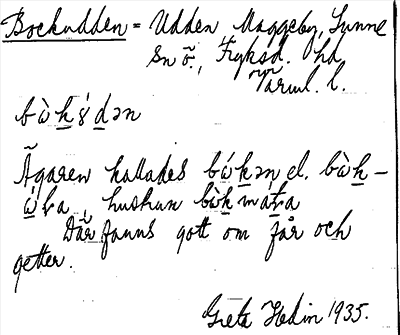 Bockudden = Udden Maggeby, Sunne
Sn ö., Fryksd. hd,
Värml. l.
bὼkŏ́dən
Ägaren kallades bókən el. bὼk-
áfva, huskun bὼkmáfva
Där fanns gott om får och
getter.
Greta Hedin 1935.